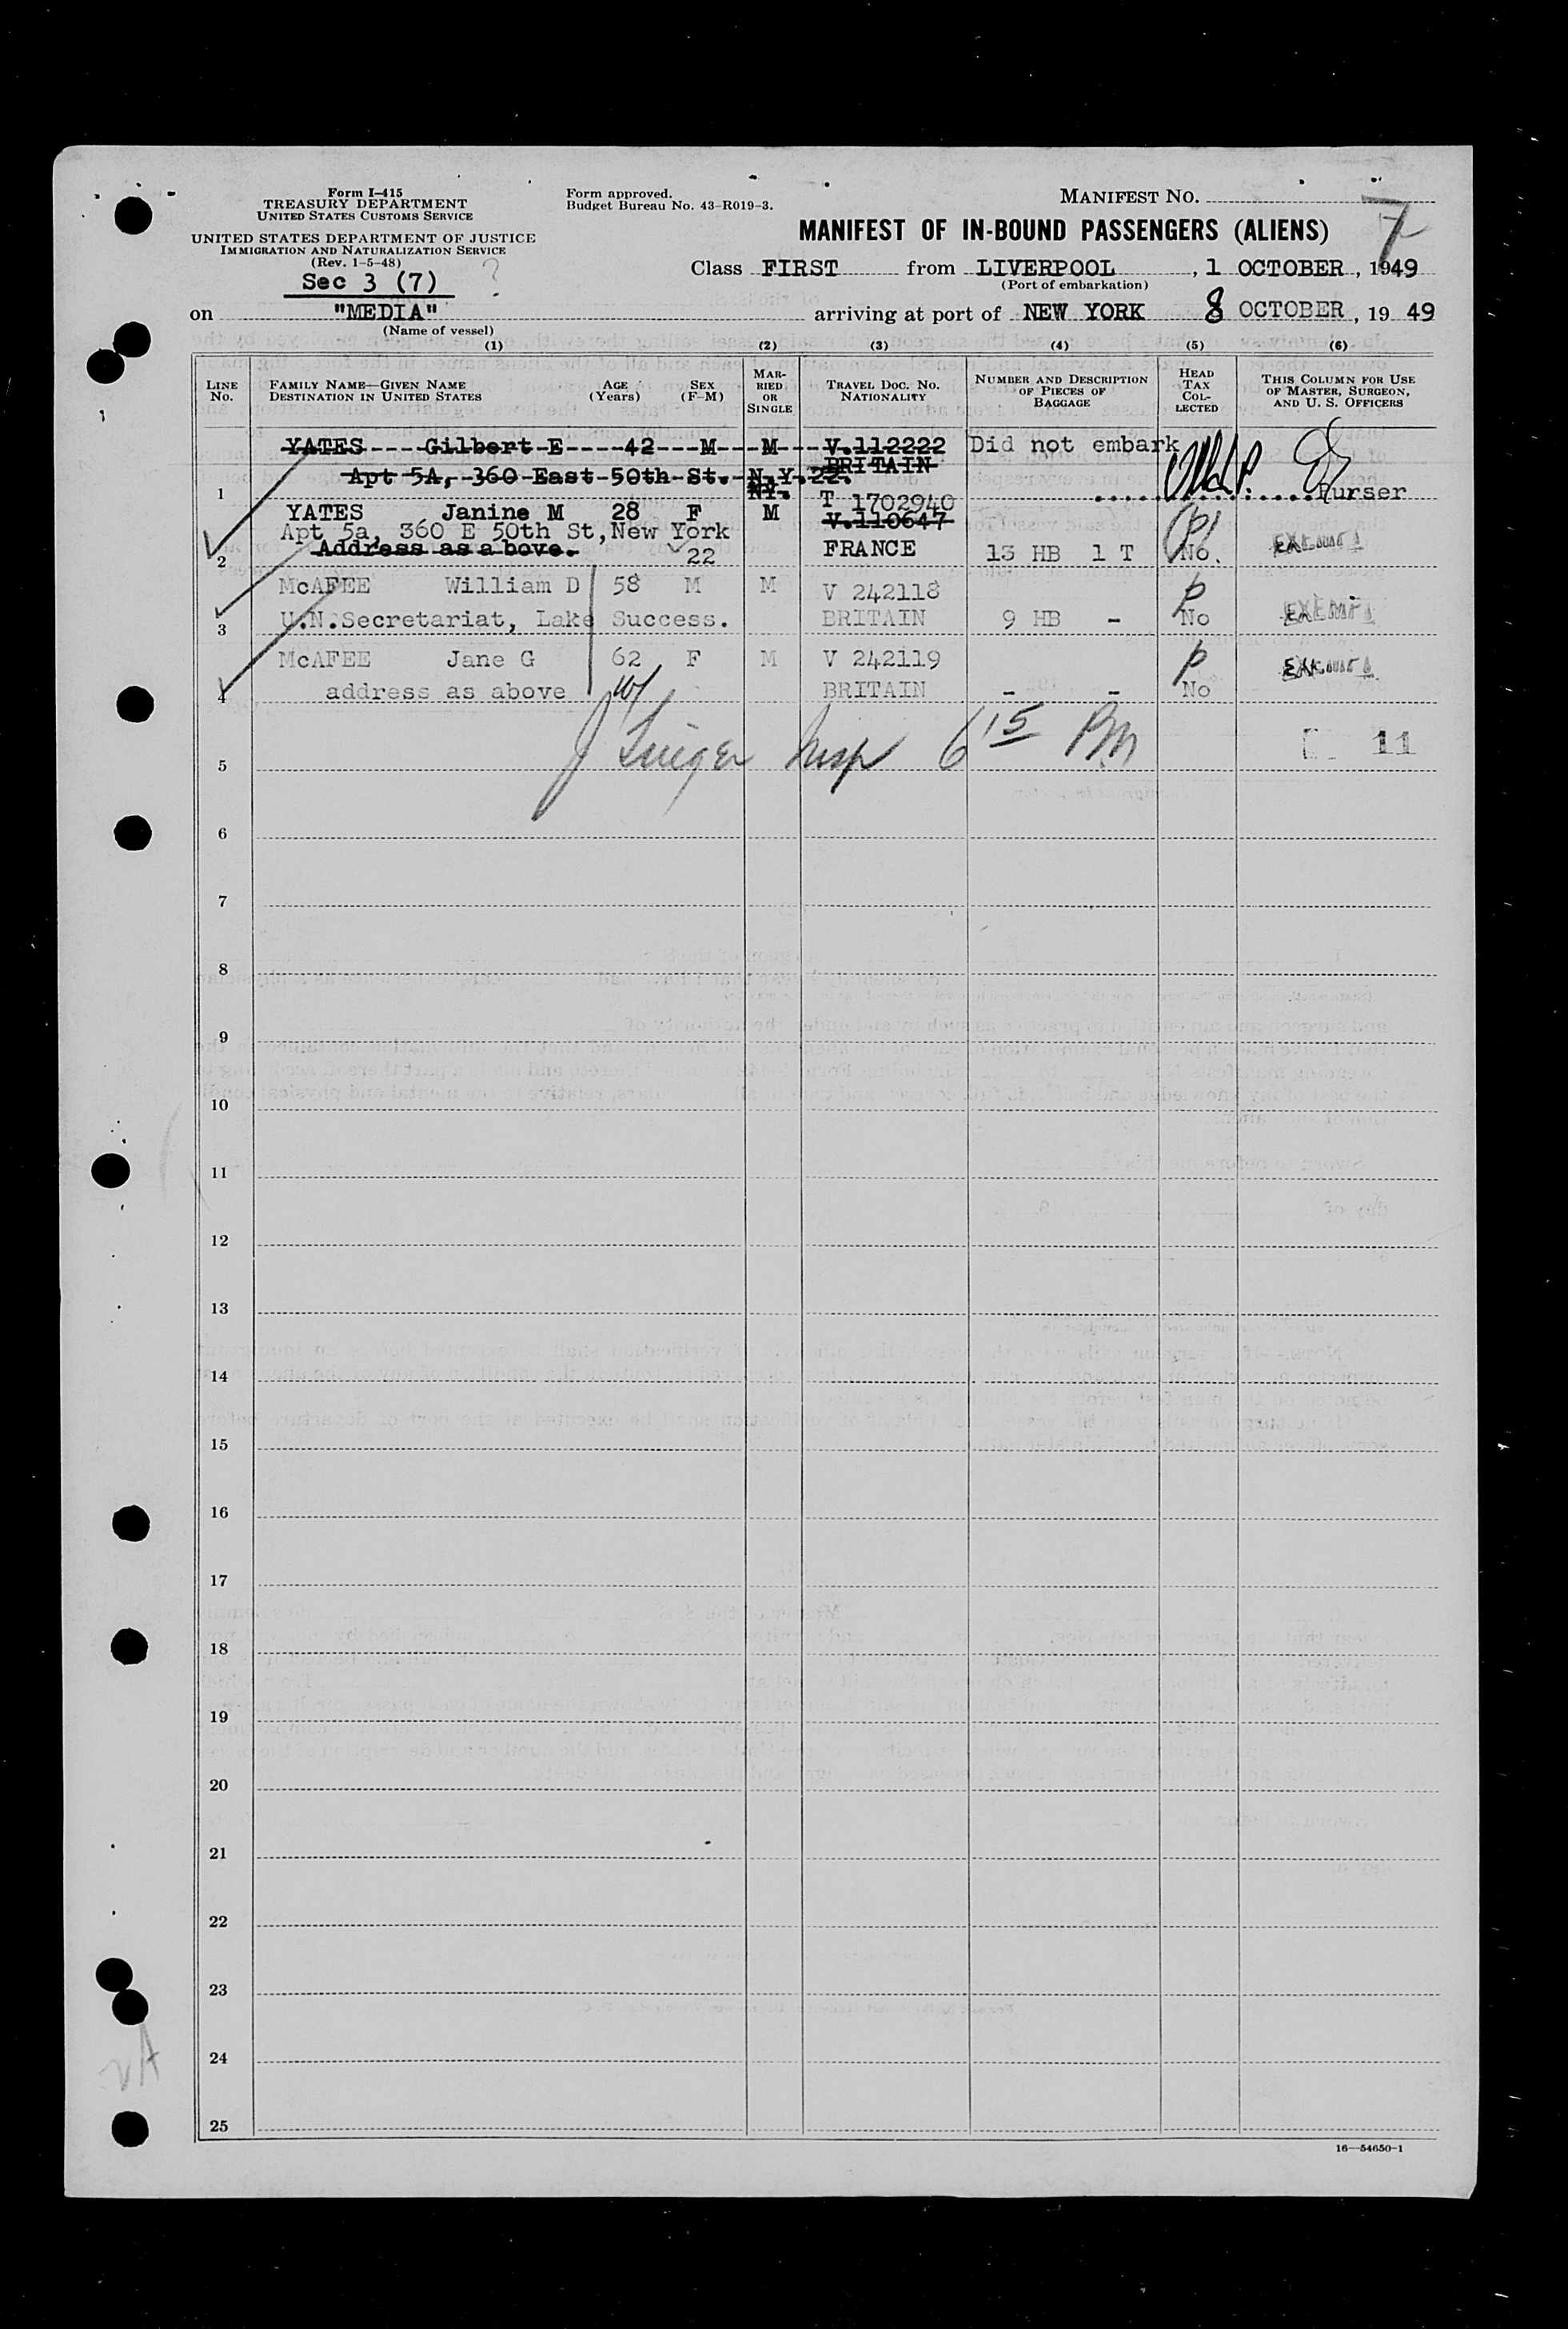 Form I-415
TREASURY DEPARTMENT
UNITED STATES CUSTOMS SERVICE
UNITED STATES DEPARTMENT OF JUSTICE
IMMIGRATION AND NATURALIZATION SERVICE
(Rev. 1-5-48)
Sec 3 (7) ?
Form approved.
Budget Bureau No. 43-R019-3.
MANIFEST NO. 7
MANIFEST OF IN-BOUND PASSENGERS (ALIENS)
Class FIRST from LIVERPOOL, 1 OCTOBER, 1949
(Port of embarkation)
on "MEDIA" arriving at port of NEW YORK 8 OCTOBER, 19 49
(Name of vessel)
(1) (2) (3) (4) (5) (6)
LINE No.
FAMILY NAME—GIVEN NAME
DESTINATION IN UNITED STATES
AGE (Years)
SEX (F-M)
MARRIED OR SINGLE
TRAVEL DOC. NO.
NATIONALITY
NUMBER AND DESCRIPTION OF PIECES OF BAGGAGE
HEAD TAX COLLECTED
THIS COLUMN FOR USE OF MASTER, SURGEON, AND U. S. OFFICERS
YATES Gilbert E 42 M M V.112222 Did not embark
BRITAIN
1 Apt 5A, 360 East 50th St. N.Y.22. NY. Purser
YATES Janine M 28 F M T 1702940
V.110647
Apt 5a, 360 E 50th St, New York
2 Address as above. 22 FRANCE 13 HB 1 T No. EXEMPT
McAFEE William D 58 M M V 242118 p
3 U.N.Secretariat, Lake Success. BRITAIN 9 HB - No EXEMPT
McAFEE Jane G 62 F M V 242119 p EXEMPT
4 address as above BRITAIN - - No
5 Insp 6 15 PM 11
6
7
8
9
10
11
12
13
14
15
16
17
18
19
20
21
22
23
24
25
16—54650-1